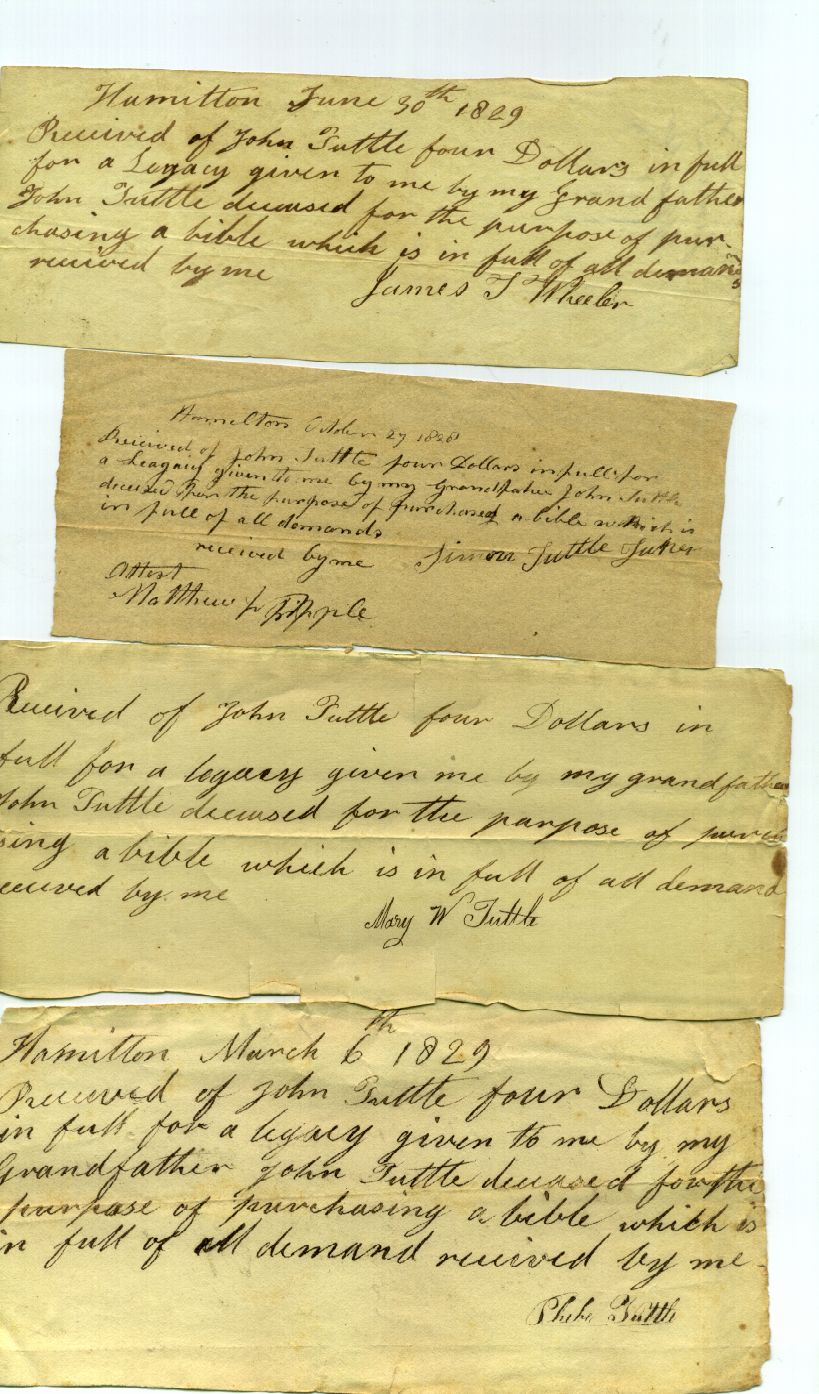 Hamilton June 30th 1829
Received of John Tuttle four Dollars in full
for a Legacy given to me by my Grand father
John Tuttle deceased for the purpose of pur-
chasing a bible which is in full of all demands
received by me
James T Wheeler
Hamilton October 27 1828
Received of John Tuttle four Dollars in full for
a Leagacy given to me by my Grandfather John Tuttle
deceised for the purpose of purchased a bible which is
in full of all demands
received by me Simon Tuttle
Attest
Matthew
Received of John Tuttle four Dollars in
full for a legacy given me by my grandfather
John Tuttle deceased for the purpose of purch
sing a bible which is in full of all demand
received by me
Mary W Tuttle
Hamilton March 6th 1829
Received of John Tuttle four Dollars
in full for a legacy given to me by my
Grandfather John Tuttle deceased for the
purpose of purchasing a bible which is
in full of all demand received by me-
Phebe Tuttle